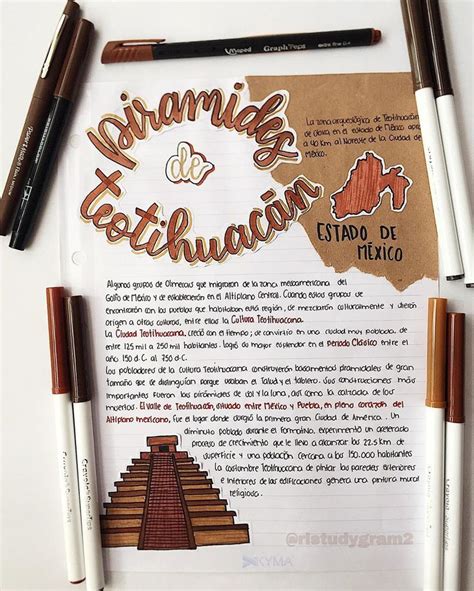 Piramides
de
teotihuacán
La zona arqueológica de Teotihuacan
en el estado de México
a 40 Km al Noreste de la Ciudad de
México.
ESTADO DE
MÉXICO
Algunos grupos de Olmecas que migraron de la zona mesoamericana del
Golfo de México y de establecerón en el Altiplano Central. Cuando estos grupos de
encontrarón con los pueblos que habitaban está región, de mezclarón culturalmente y dieron
origen a otras culturas, entre ellas la Cultura Teotihuacana.
La Ciudad Teotihuacana, creció con el tiempo; de convirtio en una ciudad muy poblada, de
entre 125 mil a 250 mil habitantes. logró du mayor esplendor en el periodo Clásico entre el
año 150 d.C. al 750 d.C.
Los pobladores de la cultura Teotihuacana construyerón basamentos piramidales de gran
tamaño que de distinguían porque usaban el Talud y el tablero. Sus construcciones más
importantes fueron las pirámides de sol y la luna, así como la calzada de los
muertos. El Valle de Teotihuacán, situado entre México y Puebla, en pleno corazón del
Altiplano mexicano, fue el lugar donde surgió la primera gran Ciudad de América. Un
diminuto poblado durante el formativo, experimentó un acelerado
proceso de crecimiento que le llevo a alcanzar los 22.5 Km de
superficie y una población cercana a los 150.000 habitantes
La costumbre Teotihuacana de pintar las paredes exteriores
e interiores de las edificaciones genera una pintura mural
religiosa.
@rlstudygram2
KYMA
Maped Graph'Peps